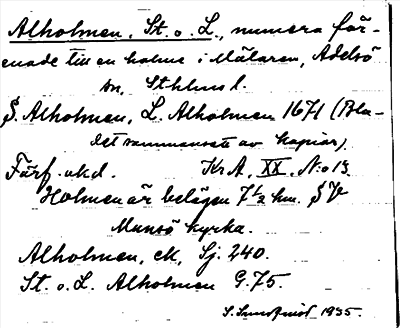 Alholmen, St. o. L., numera för-
enade till en holme i Mälaren, Adelsö
sn, Sthlms l.
S. Alholmen, L. Alholmen 1671 (Bla-
det sammansatt av kopior)
Färg.okd. Kr.A. XX. N:o 13
Holmen är belägen 7 1/2 km. SV
Munsö kyrka.
Alholmen, ek, Sj. 240.
St. o. L. Alholmen G. 75.
1935.